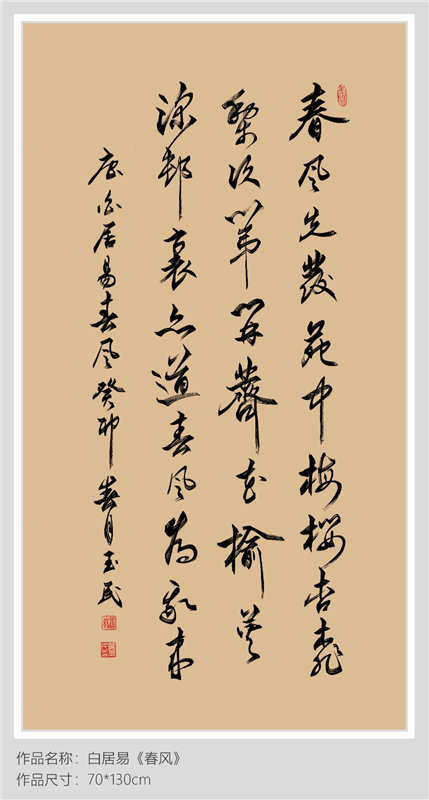 春風先發苑中梅櫻杏桃
梨次第開薺花榆莢
深邨裏亦道春風為我來
唐白居易春風癸卯春月玉民
作品名称：白居易《春风》
作品尺寸：70*130cm